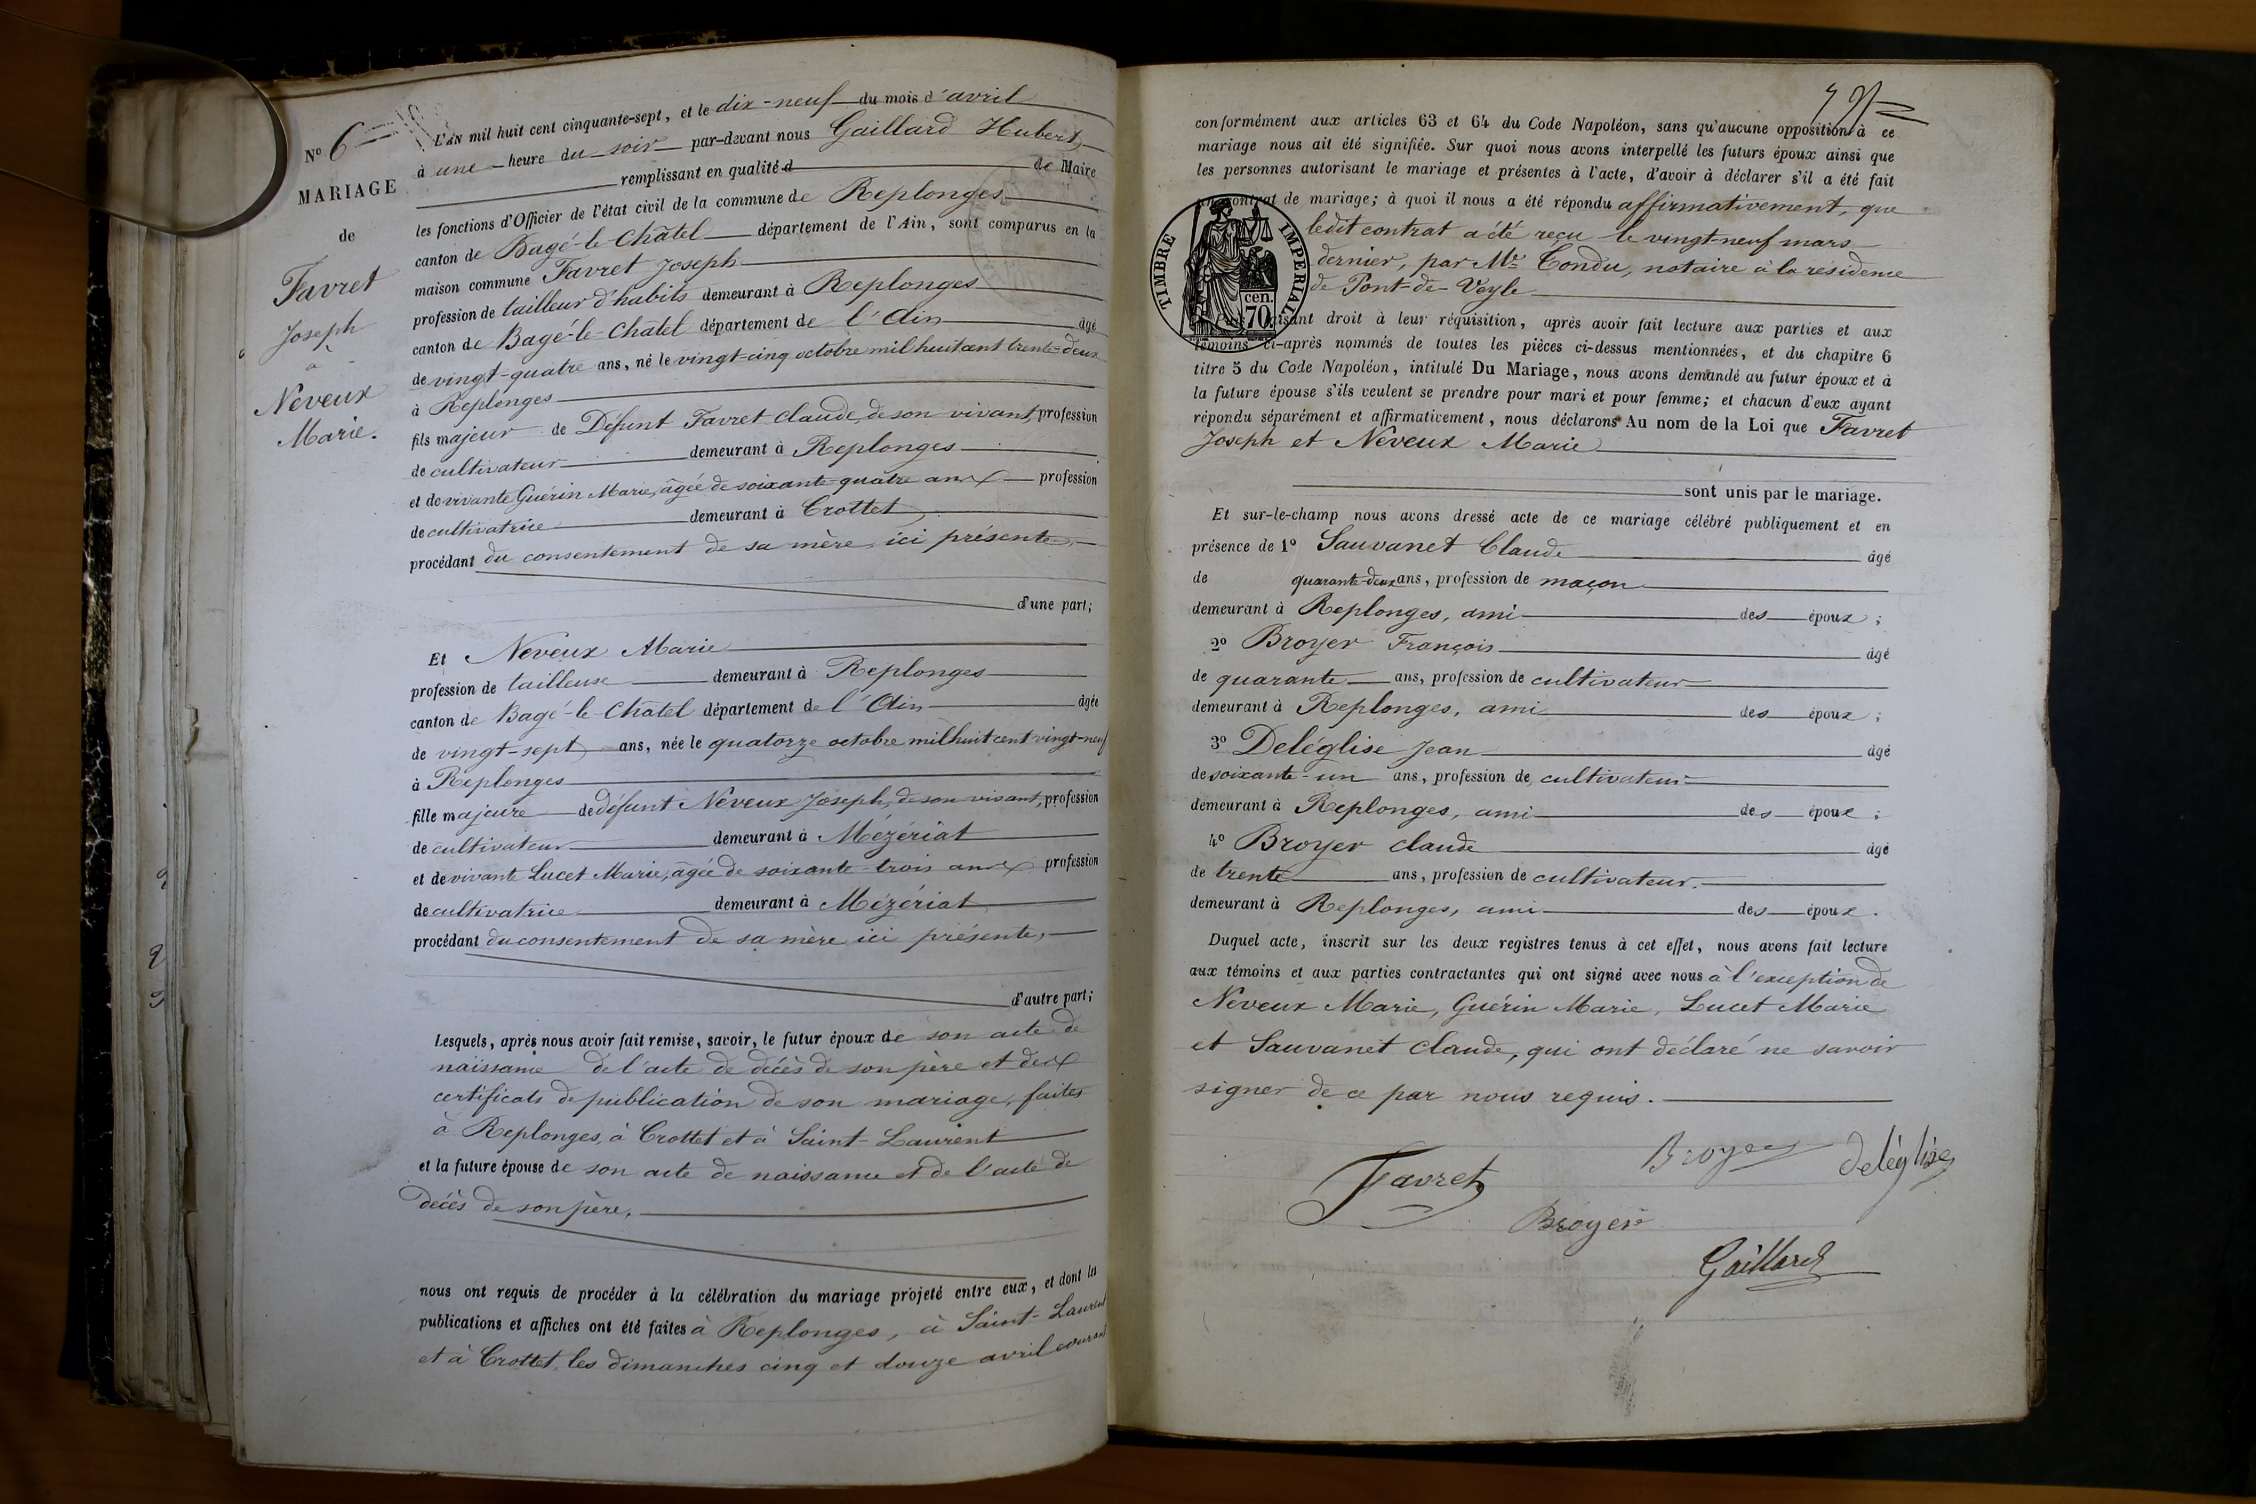 N° 6
MARIAGE
de
Favret
Joseph
à
Neveux
Marie.
L'AN mil huit cent cinquante-sept, et le dix-neuf du mois d'avril
à une heure du soir par-devant nous Gaillard Hubert,
remplissant en qualité d de Maire
les fonctions d'Officier de l'état civil de la commune de Replonges
canton de Bagé-le-Châtel département de l'Ain, sont comparus en la
maison commune Favret Joseph
profession de tailleur d'habits demeurant à Replonges
canton de Bagé-le-Châtel département de l'Ain âgé
de vingt-quatre ans, né le vingt-cinq octobre mil huit cent trente-deux
à Replonges
fils majeur de Défunt Favret Claude, de son vivant, profession
de cultivateur demeurant à Replonges
et de vivante Guérin Marie, âgée de soixante-quatre ans profession
de cultivatrice demeurant à Crottet,
procédant du consentement de sa mère ici présente,
d'une part;
Et Neveux Marie
profession de tailleuse demeurant à Replonges
canton de Bagé-le-Châtel département de l'Ain âgée
de vingt-sept ans, née le quatorze octobre mil huit cent vingt-neuf
à Replonges
fille majeure de défunt Neveux Joseph, de son vivant, profession
de cultivateur demeurant à Mézériat
et de vivante Lucet Marie, âgée de soixante-trois ans profession
de cultivatrice demeurant à Mézériat
procédant du consentement de sa mère ici présente,
d'autre part;
Lesquels, après nous avoir fait remise, savoir, le futur époux de son acte de
naissance de l'acte de décès de son père et des
certificats de publication de son mariage, faites
à Replonges, à Crottet et à Saint-Laurent
et la future épouse de son acte de naissance et de l'acte de
décès de son père,
nous ont requis de procéder à la célébration du mariage projeté entre eux, et dont les
publications et affiches ont été faites à Replonges, à Saint-Laurent
et à Crottet, les dimanches cinq et douze avril courant
conformément aux articles 63 et 64 du Code Napoléon, sans qu'aucune opposition à ce
mariage nous ait été signifiée. Sur quoi nous avons interpellé les futurs époux ainsi que
les personnes autorisant le mariage et présentes à l'acte, d'avoir à déclarer s'il a été fait
contrat de mariage; à quoi il nous a été répondu affirmativement, que
ledit contrat a été reçu le vingt-neuf mars
dernier, par Me Tondu, notaire à la résidence
de Pont-de-Veyle
TIMBRE IMPERIAL
cen.
70
faisant droit à leur réquisition, après avoir fait lecture aux parties et aux
témoins ci-après nommés de toutes les pièces ci-dessus mentionnées, et du chapitre 6
titre 5 du Code Napoléon, intitulé Du Mariage, nous avons demandé au futur époux et à
la future épouse s'ils veulent se prendre pour mari et pour femme; et chacun d'eux ayant
répondu séparément et affirmativement, nous déclarons Au nom de la Loi que Favret
Joseph et Neveux Marie
sont unis par le mariage.
Et sur-le-champ nous avons dressé acte de ce mariage célébré publiquement et en
présence de 1° Sauvanet Claude âgé
de quarante-deux ans, profession de maçon
demeurant à Replonges, ami des époux;
2° Broyer François âgé
de quarante ans, profession de cultivateur
demeurant à Replonges, ami des époux;
3° Deléglise Jean âgé
de soixante-un ans, profession de cultivateur
demeurant à Replonges, ami des époux;
4° Broyer Claude âgé
de trente ans, profession de cultivateur.
demeurant à Replonges, ami des époux.
Duquel acte, inscrit sur les deux registres tenus à cet effet, nous avons fait lecture
aux témoins et aux parties contractantes qui ont signé avec nous à l'exception de
Neveux Marie, Guérin Marie, Lucet Marie
et Sauvanet Claude, qui ont déclaré ne savoir
signer de ce par nous requis.
Broyer
deléglise
Favret
Broyer
Gaillard